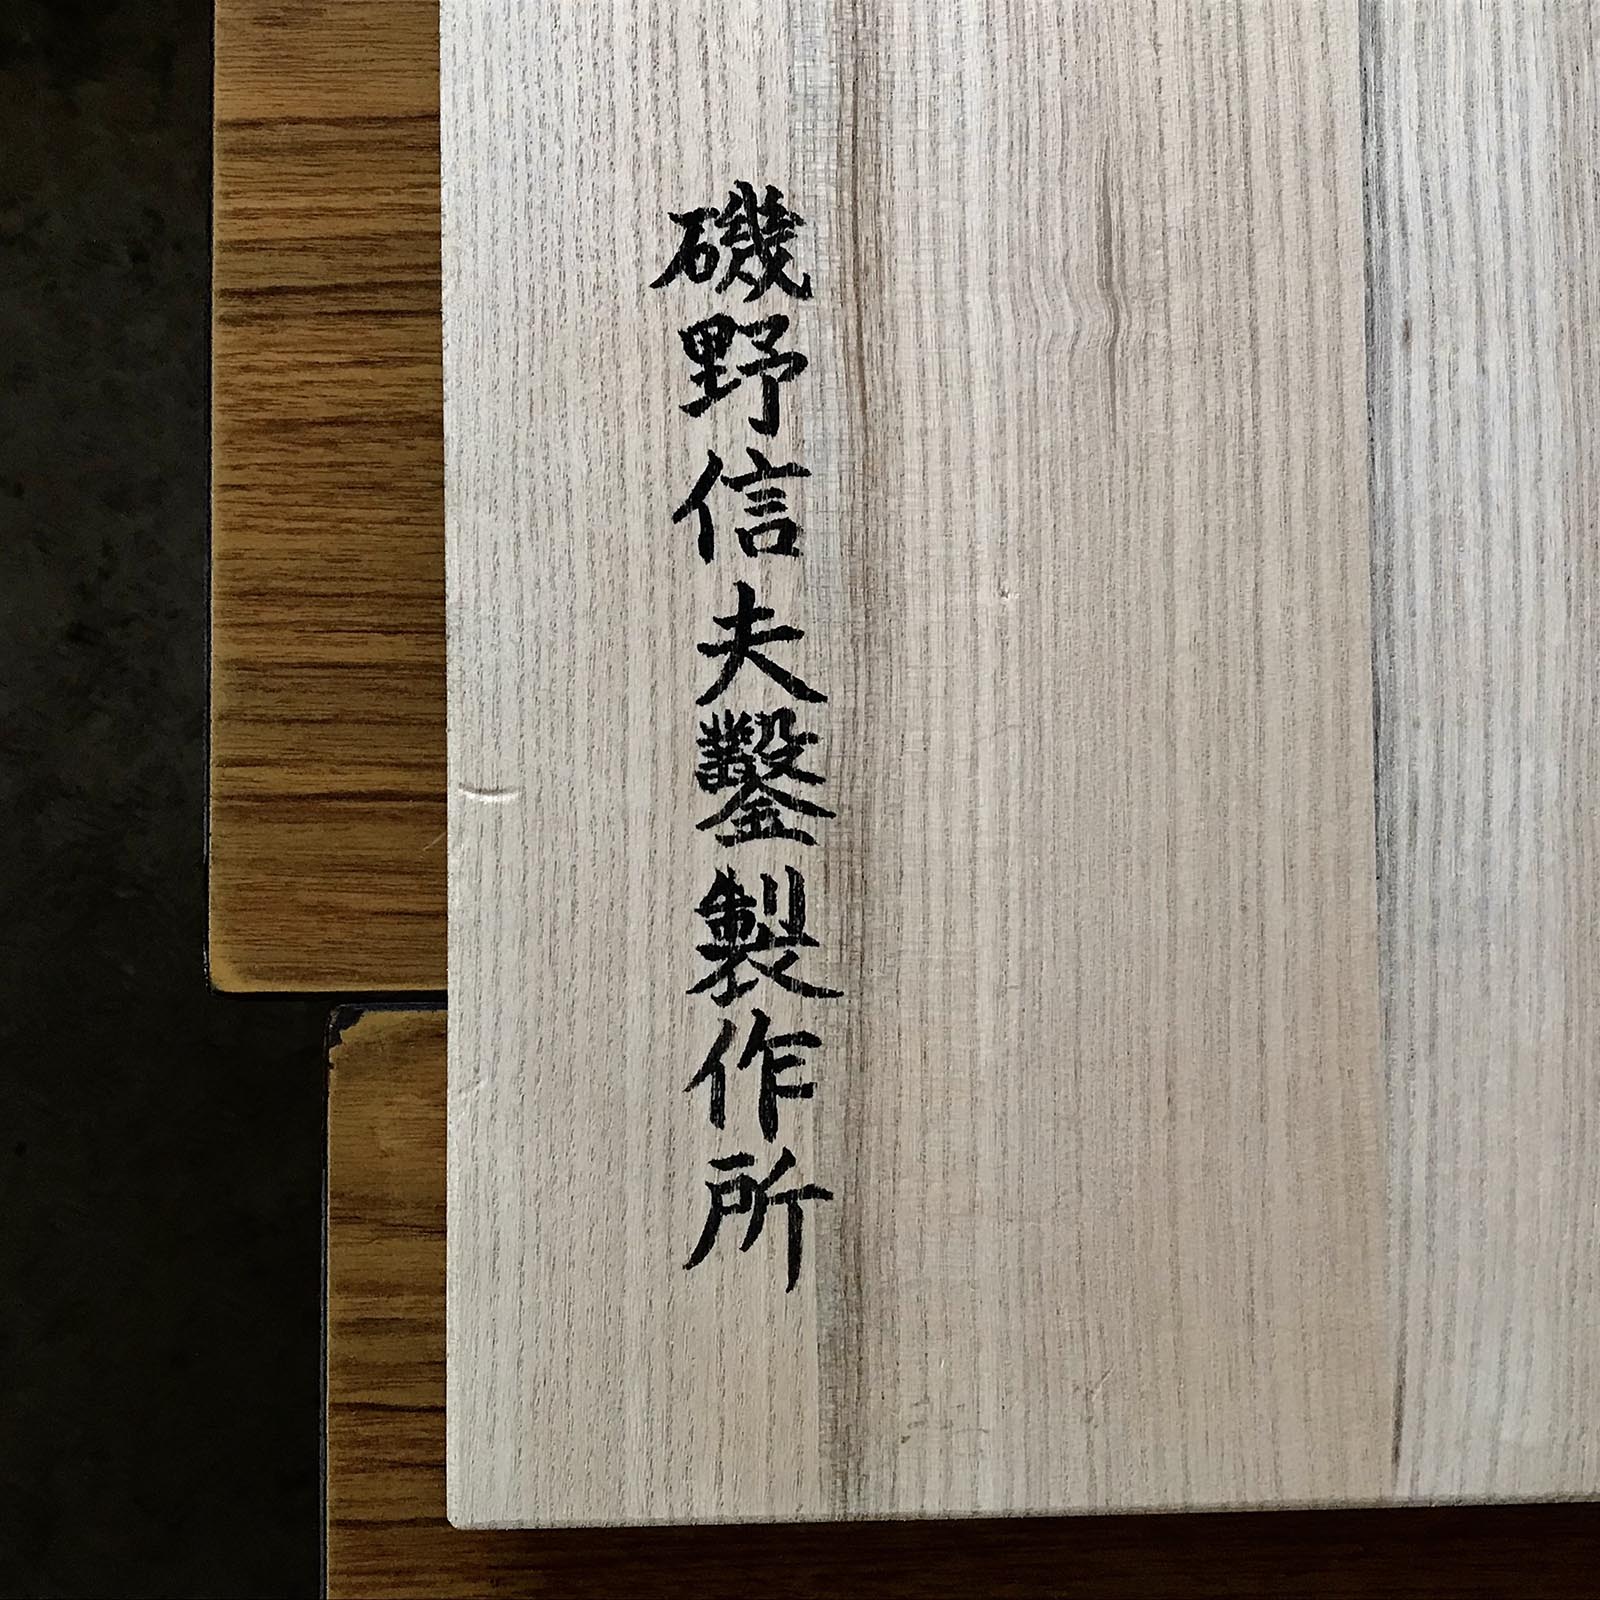 磯野信夫鑿製作所